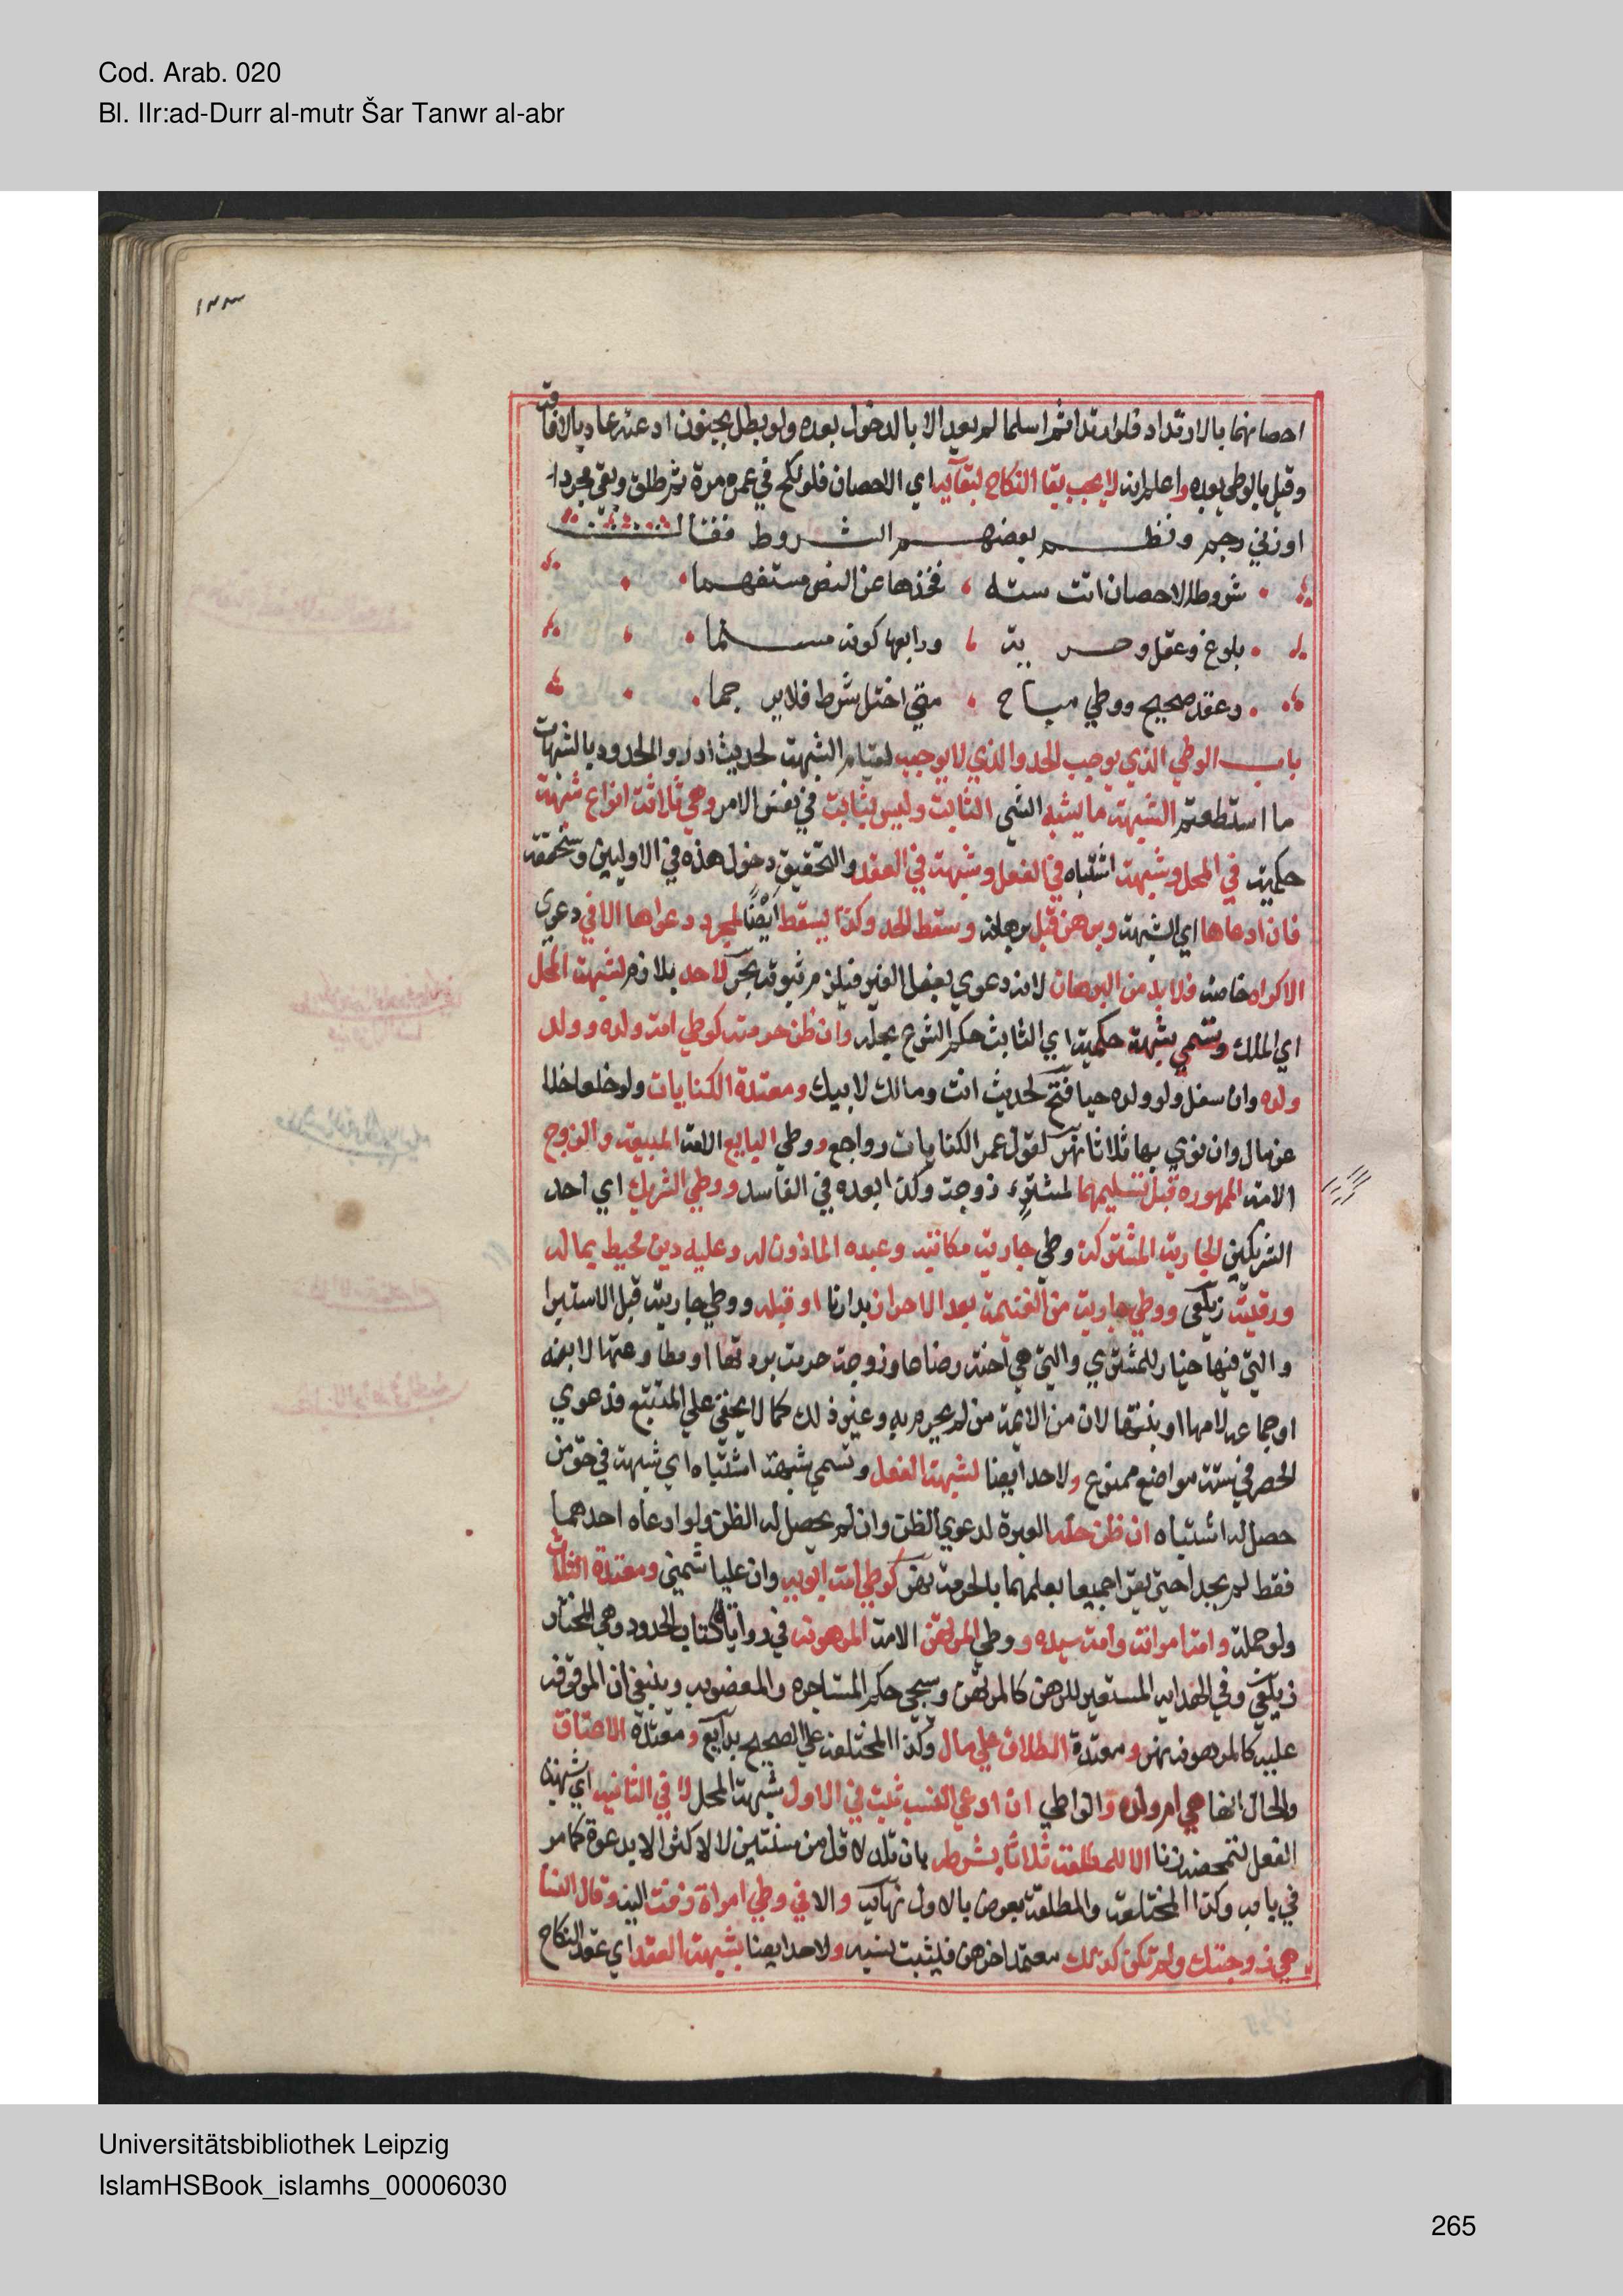 Cod. Arab. 020
Bl. IIr:ad-Durr al-mutr Šar Tanwr al-abr
١٣٣
احصانهما بالارتداد فلو ارتدا ثم اسلما لم يعد الا بالدخول بعده ولو بطل بجنون او عته عاد بالافاقة
وقيل بالوطي بعده واعلم انه لا يجب بقا النكاح لبقائه اي الاحصان فلو نكح في عمره مرة ثم طلق وبقي مجردا
او زني رجم ونظم بعضهم الشروط فقال
شروط الاحصان اتت ستة فخذها عن النص مستفهما
بلوغ وعقل وحرية ورابعها كونه مسلما
وعقد صحيح ووطي مباح متي اختل شرط فلا يرجما
باب الوطي الذي يوجب الحد والذي لا يوجبه لقيام الشبهة لحديث ادرؤا الحدود بالشبهات
ما استطعتم الشبهة ما يشبه الشي الثابت وليس بثابت في نفس الامر وهي ثلاثة انواع شبهة
حكمية في المحل وشبهة اشتباه في الفعل وشبهة في العقد والتحقيق دخول هذه في الاوليين وسنحققه
فان ادعاها اي الشبهة وبرهن قبل برهانه وسقط الحد وكذا يسقط ايضا بمجرد دعواها الا في دعوي
الاكراه خاصة فلا بد من البرهان لانه دعوي بفعل الغير فيلزم ثبوته بحر لا حد بلازم لشبهة المحل
اي الملك وتسمي شبهة حكمية اي الثابت حكم الشرع بحله وان ظن حرمته كوطي امة ولده وولد
ولده وان سفل ولو ولده حيا فتح لحديث انت ومالك لابيك ومعتدة الكنايات ولو خلعا خلا
عن مال وان نوي بها ثلاثا نهر لقول عمر الكنايات رواجع ووطي البايع الامة المبيعة والزوج
الامة الممهورة قبل تسليمها لمشتر، زوجة وكذا بعده في الفاسد ووطي الشريك اي احد
الشريكين الجارية المشتركة وطي جارية مكاتبه وعبده الماذون له وعليه دين محيط بماله
ورقبته زيلعي ووطي جارية من الغنيمة بعد الاحراز بدارنا او قبله ووطي جاريته قبل الاستبرا
والتي فيها خيار للمشتري والتي هي اخته رضاعا وزوجة حرمت بردتها او مطاوعتها لابنه
او جماعه لامها او بنتها لان من الائمة من لم يحرم به وغير ذلك كما لا يخفي علي المتتبع فدعوي
الحصر في ستة مواضع ممنوع ولا حد ايضا لشبهة الفعل وتسمي شبهة اشتباه اي شبهة في حق من
حصل له اشتباه ان ظن حله العبرة لدعوي الظن وان لم يحصل له الظن ولو ادعاه احدهما
فقط لم يحدا حتي يقرا جميعا بعلمهما بالحرمة نهر كوطي امة ابويه وان عليا شمني ومعتدة الثلاث
ولو جملة وامة امراته وامة سيده ووطي المرتهن الامة المرهونة في رواية كتاب الحدود وهي المختار
زيلعي وفي الهداية المستعير للرهن كالمرتهن وسيجي حكم المستاجرة والمغصوبة وينبغي ان الموقوفة
عليه كالمرهونة نهر ومعتدة الطلاق علي مال وكذا المختلعة علي الصحيح بدايع ومعتدة الاعتاق
والحال انها هي ام ولده والواطي ان ادعي النسب ثبت في الاول شبهة المحل لا في الثانية اي شبهة
الفعل لتمحضه زنا الا المطلقة ثلاثا بشرطه بان تلد لاقل من سنتين لا لاكثر الا بدعوة كما مر
في بابه وكذا المختلعة والمطلقة بعوض بالاولي نهاية والا في وطي امراة زفت اليه وقال النسا
هي زوجتك ولم تكن كذلك معتمدا خبرهن فيثبت نسبه ولا حد ايضا بشبهة العقد اي عقد النكاح
Universitätsbibliothek Leipzig
IslamHSBook_islamhs_00006030
265